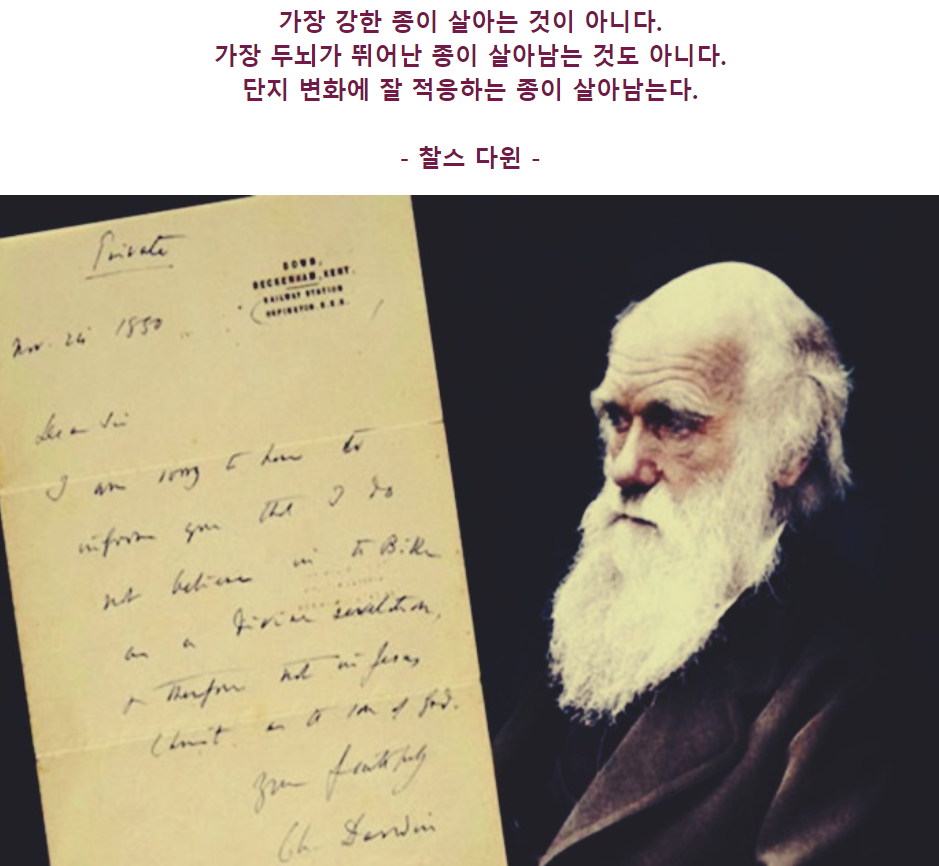 가장 강한 종이 살아는 것이 아니다.
가장 두뇌가 뛰어난 종이 살아남는 것도 아니다.
단지 변화에 잘 적응하는 종이 살아남는다.
- 찰스 다윈 -
Private
DOWN,
BECKENHAM, KENT.
RAILWAY STATION
ORPINGTON. S.E.R.
Nov. 24 1880
Dear Sir
I am sorry to have to
inform you that I do
not believe in the Bible
as a divine revelation,
& therefore not in Jesus
Christ as the son of God.
Yours faithfully
Ch. Darwin